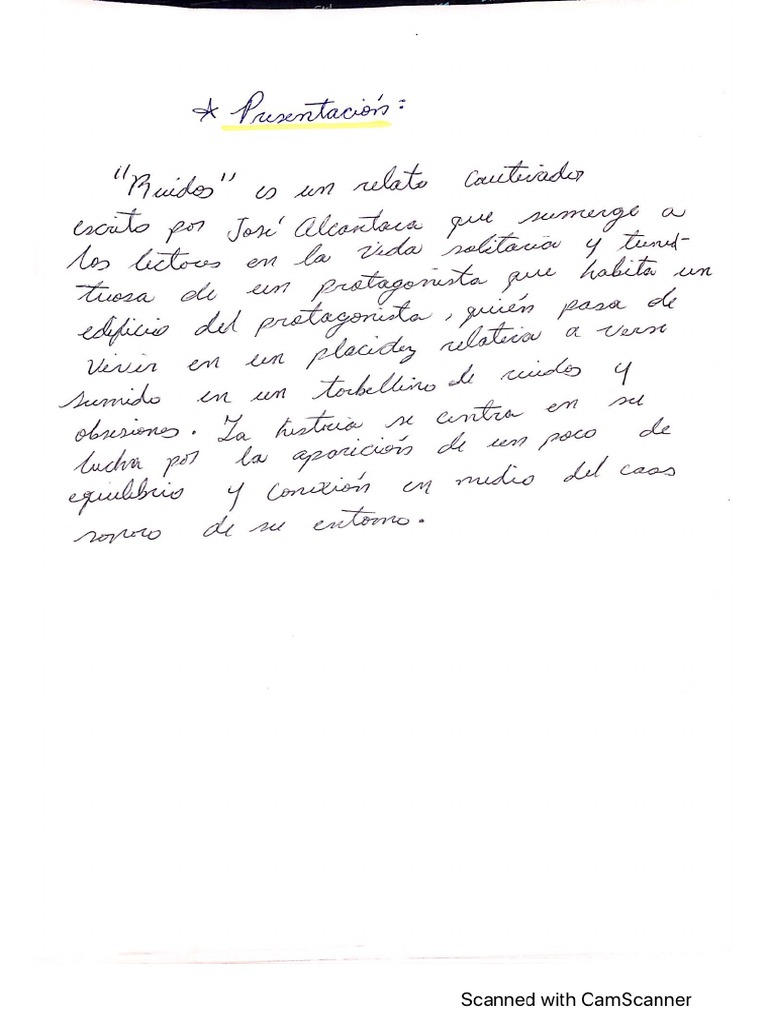 * Presentación:
"Ruidos" es un relato cautivador
escrito por José Alcantara que sumerge a
los lectores en la vida solitaria y tumul-
tuosa de un protagonista que habita un
edificio del protagonista, quién pasa de
vivir en un placidez relativa a verse
sumido en un torbellino de ruidos y
obsesiones. La historia se centra en su
lucha por la aparición de un poco de
equilibrio y conexión en medio del caos
sonoro de su entorno.
Scanned with CamScanner